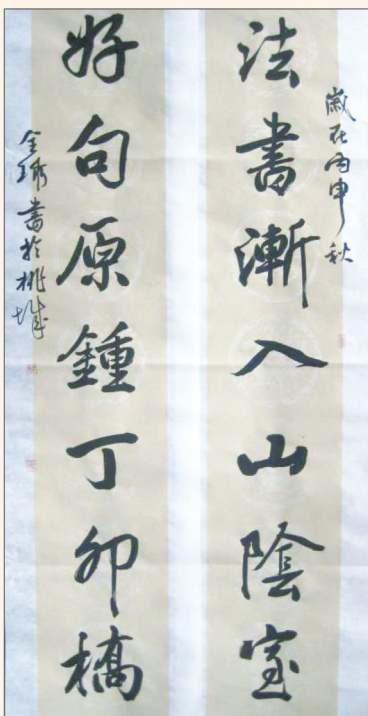 歲在丙申秋
法書漸入山陰室
好句原鍾丁卯橋
金環書於桃城